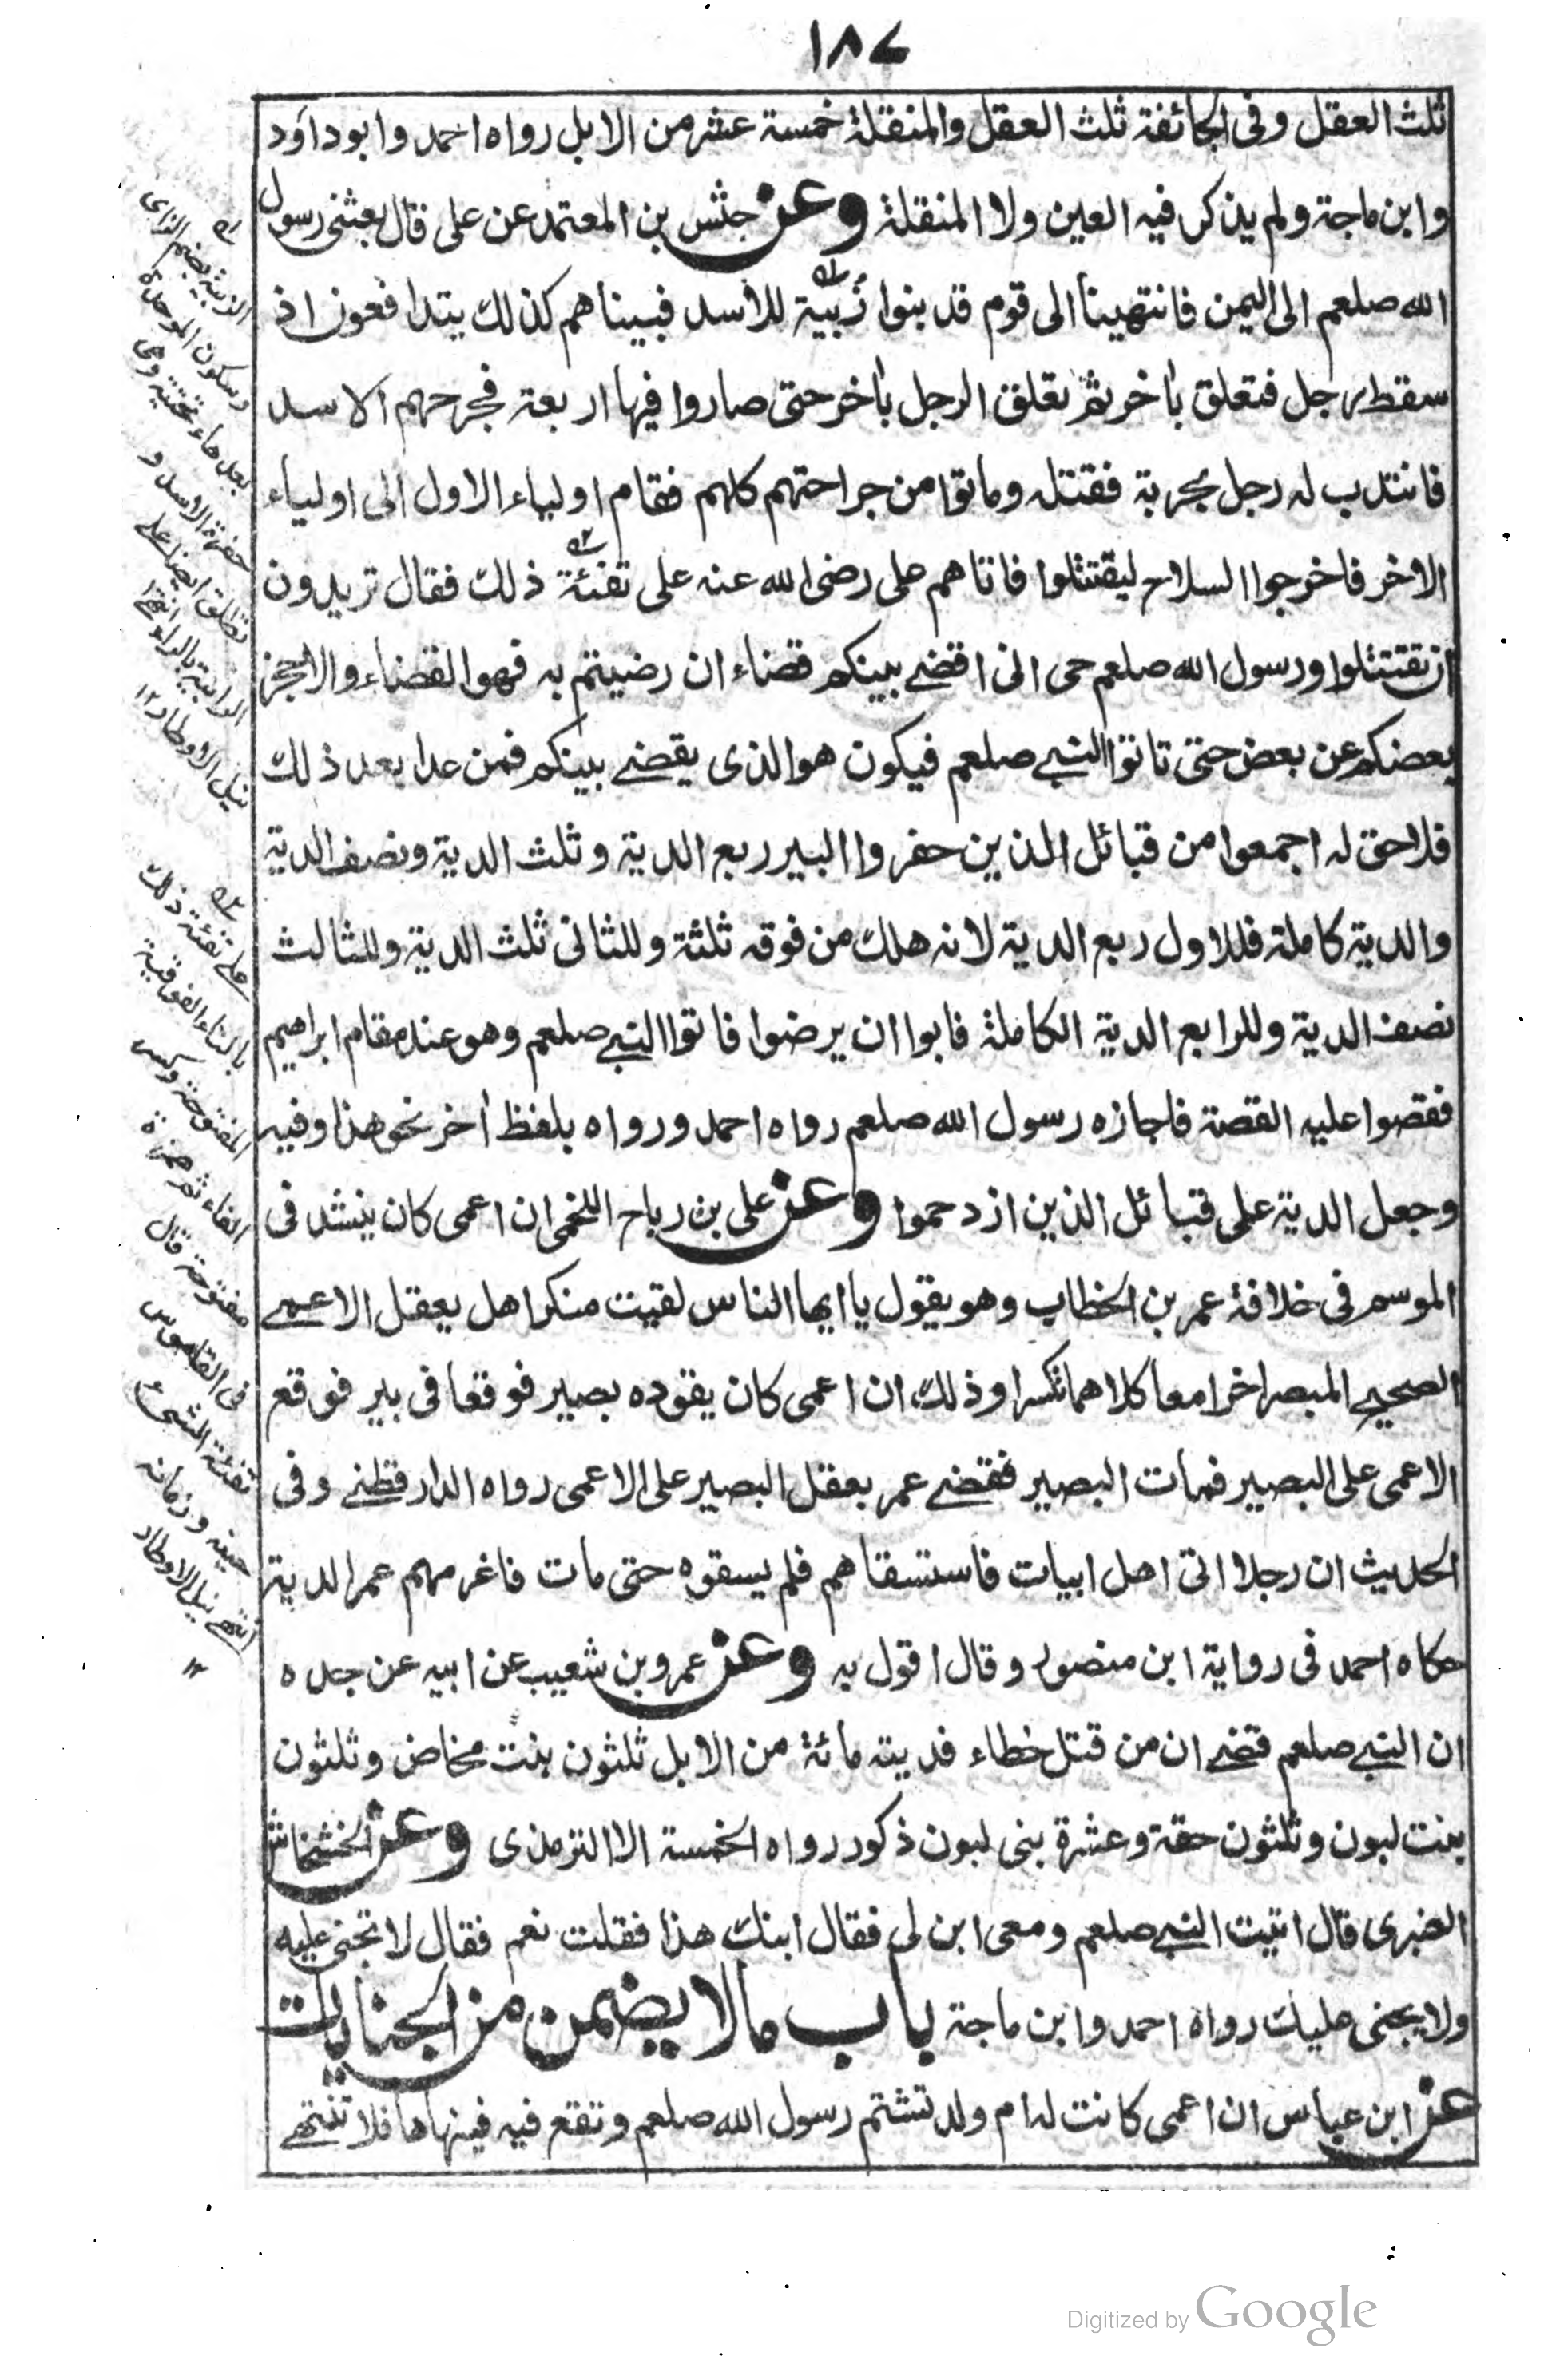 ١٨٧
ثلث العقل وفى الجائفة ثلث العقل والمنقلة خمسة عشر من الابل رواه احمد وابوداود
وابن ماجة ولم يذكر فيه العين ولا المنقلة وعن حنش بن المعتمد عن على قال بعثنى رسول
الله صلعم الى اليمن فانتهينا الى قوم قد بنوا زُبية للاسد فبيناهم كذلك يتدافعون اذ
سقط رجل فتعلق باخر ثم تعلق الرجل باخر حتى صاروا فيها اربعة فجرحهم الاسد
فانتدب له رجل بحربة فقتله وماتوا من جراحتهم كلهم فقام اولياء الاول الى اولياء
الاخر فاخرجوا السلاح ليقتتلوا فاتاهم على رضى الله عنه على تفئة ذلك فقال تريدون
ان تقتتلوا ورسول الله صلعم حى انى اقضے بينكم قضاء ان رضيتم به فهو القضاء والا حجز
بعضكم عن بعض حتى تاتوا النبے صلعم فيكون هو الذى يقضے بينكم فمن عدا بعد ذلك
فلا حق له اجمعوا من قبائل الذين حفروا البير ربع الدية وثلث الدية ونصف الدية
والدية كاملة فللاول ربع الدية لانه هلك من فوقه ثلثة وللثانى ثلث الدية وللثالث
نصف الدية وللرابع الدية الكاملة فابوا ان يرضوا فاتوا النبے صلعم وهو عند مقام ابراهيم
فقصوا عليه القصة فاجازه رسول الله صلعم رواه احمد ورواه بلفظ اخر نحو هذا وفيه
وجعل الدية على قبائل الذين ازدحموا وعن على بن رباح اللخمى ان اعمى كان ينشد فى
الموسم فى خلافة عمر بن الخطاب وهو يقول يا ايها الناس لقيت منكرا هل يعقل الاعمے
الصحيح المبصرا خرا معا كلاهما تكسرا وذلك ان اعمى كان يقوده بصير فوقعا فى بير فوقع
الاعمى على البصير فمات البصير فقضے عمر بعقل البصير على الاعمى رواه الدارقطنے وفى
الحديث ان رجلا اتى اهل ابيات فاستسقاهم فلم يسقوه حتى مات فاغرمهم عمر الدية
حكاه احمد فى رواية ابن منصور وقال اقول به وعن عمرو بن شعيب عن ابيه عن جده
ان النبے صلعم قضے ان من قتل خطاء فديته مائة من الابل ثلثون بنت مخاض وثلثون
بنت لبون وثلثون حقة وعشرة بنى لبون ذكور رواه الخمسة الا الترمذى وعن الخشخاش
العنبرى قال اتيت النبے صلعم ومعى ابن لى فقال ابنك هذا فقلت نعم فقال لا تجنى عليه
ولا يجنى عليك رواه احمد وابن ماجة باب مالا يضمن من الجنايات
عن ابن عباس ان اعمى كانت له ام ولد تشتم رسول الله صلعم وتقع فيه فينهاها فلا تنتهے
له
الزبية بضم الزاى
وسكون الموحدة
بعدها تحتية وهى
حفرة الاسد و
تطلق ايضا على
الرابية بالراء انتهى
نيل الاوطار ١٢
ته
على تفئة ذلك
بالتاء الفوقية
المفتوحة وكسر
الفاء ثم همزة
مفتوحة قال
فى القاموس
تفئة الشىء
حينه وزمانه
انتهے نيل الاوطار
١٢
Digitized by Google